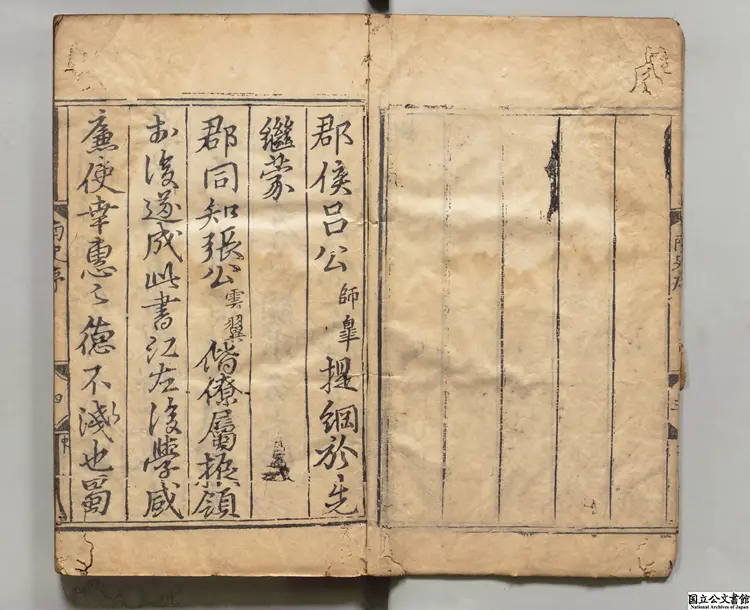 郡侯吕公師皐提綱於先
繼蒙
郡同知張公雲翼偕僚屬振領
於後遂成此書江左後學咸
廉使幸惠之德不淺也蜀
国立公文書館
National Archives of Japan